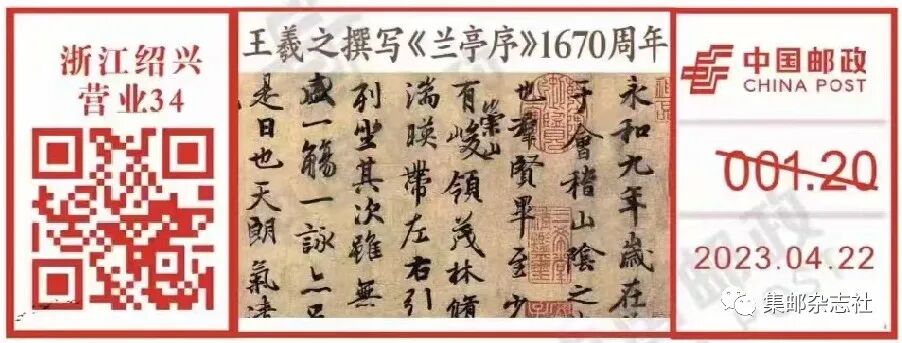 浙江绍兴
营业34
王羲之撰写《兰亭序》1670周年
永和九年歲在
于會稽山陰之
也羣賢畢至少
有崇山峻領茂林脩
湍暎帶左右引
列坐其次雖無
盛一觴一詠亦足
是日也天朗氣清
中国邮政
CHINA POST
001.20
2023.04.22
集邮杂志社